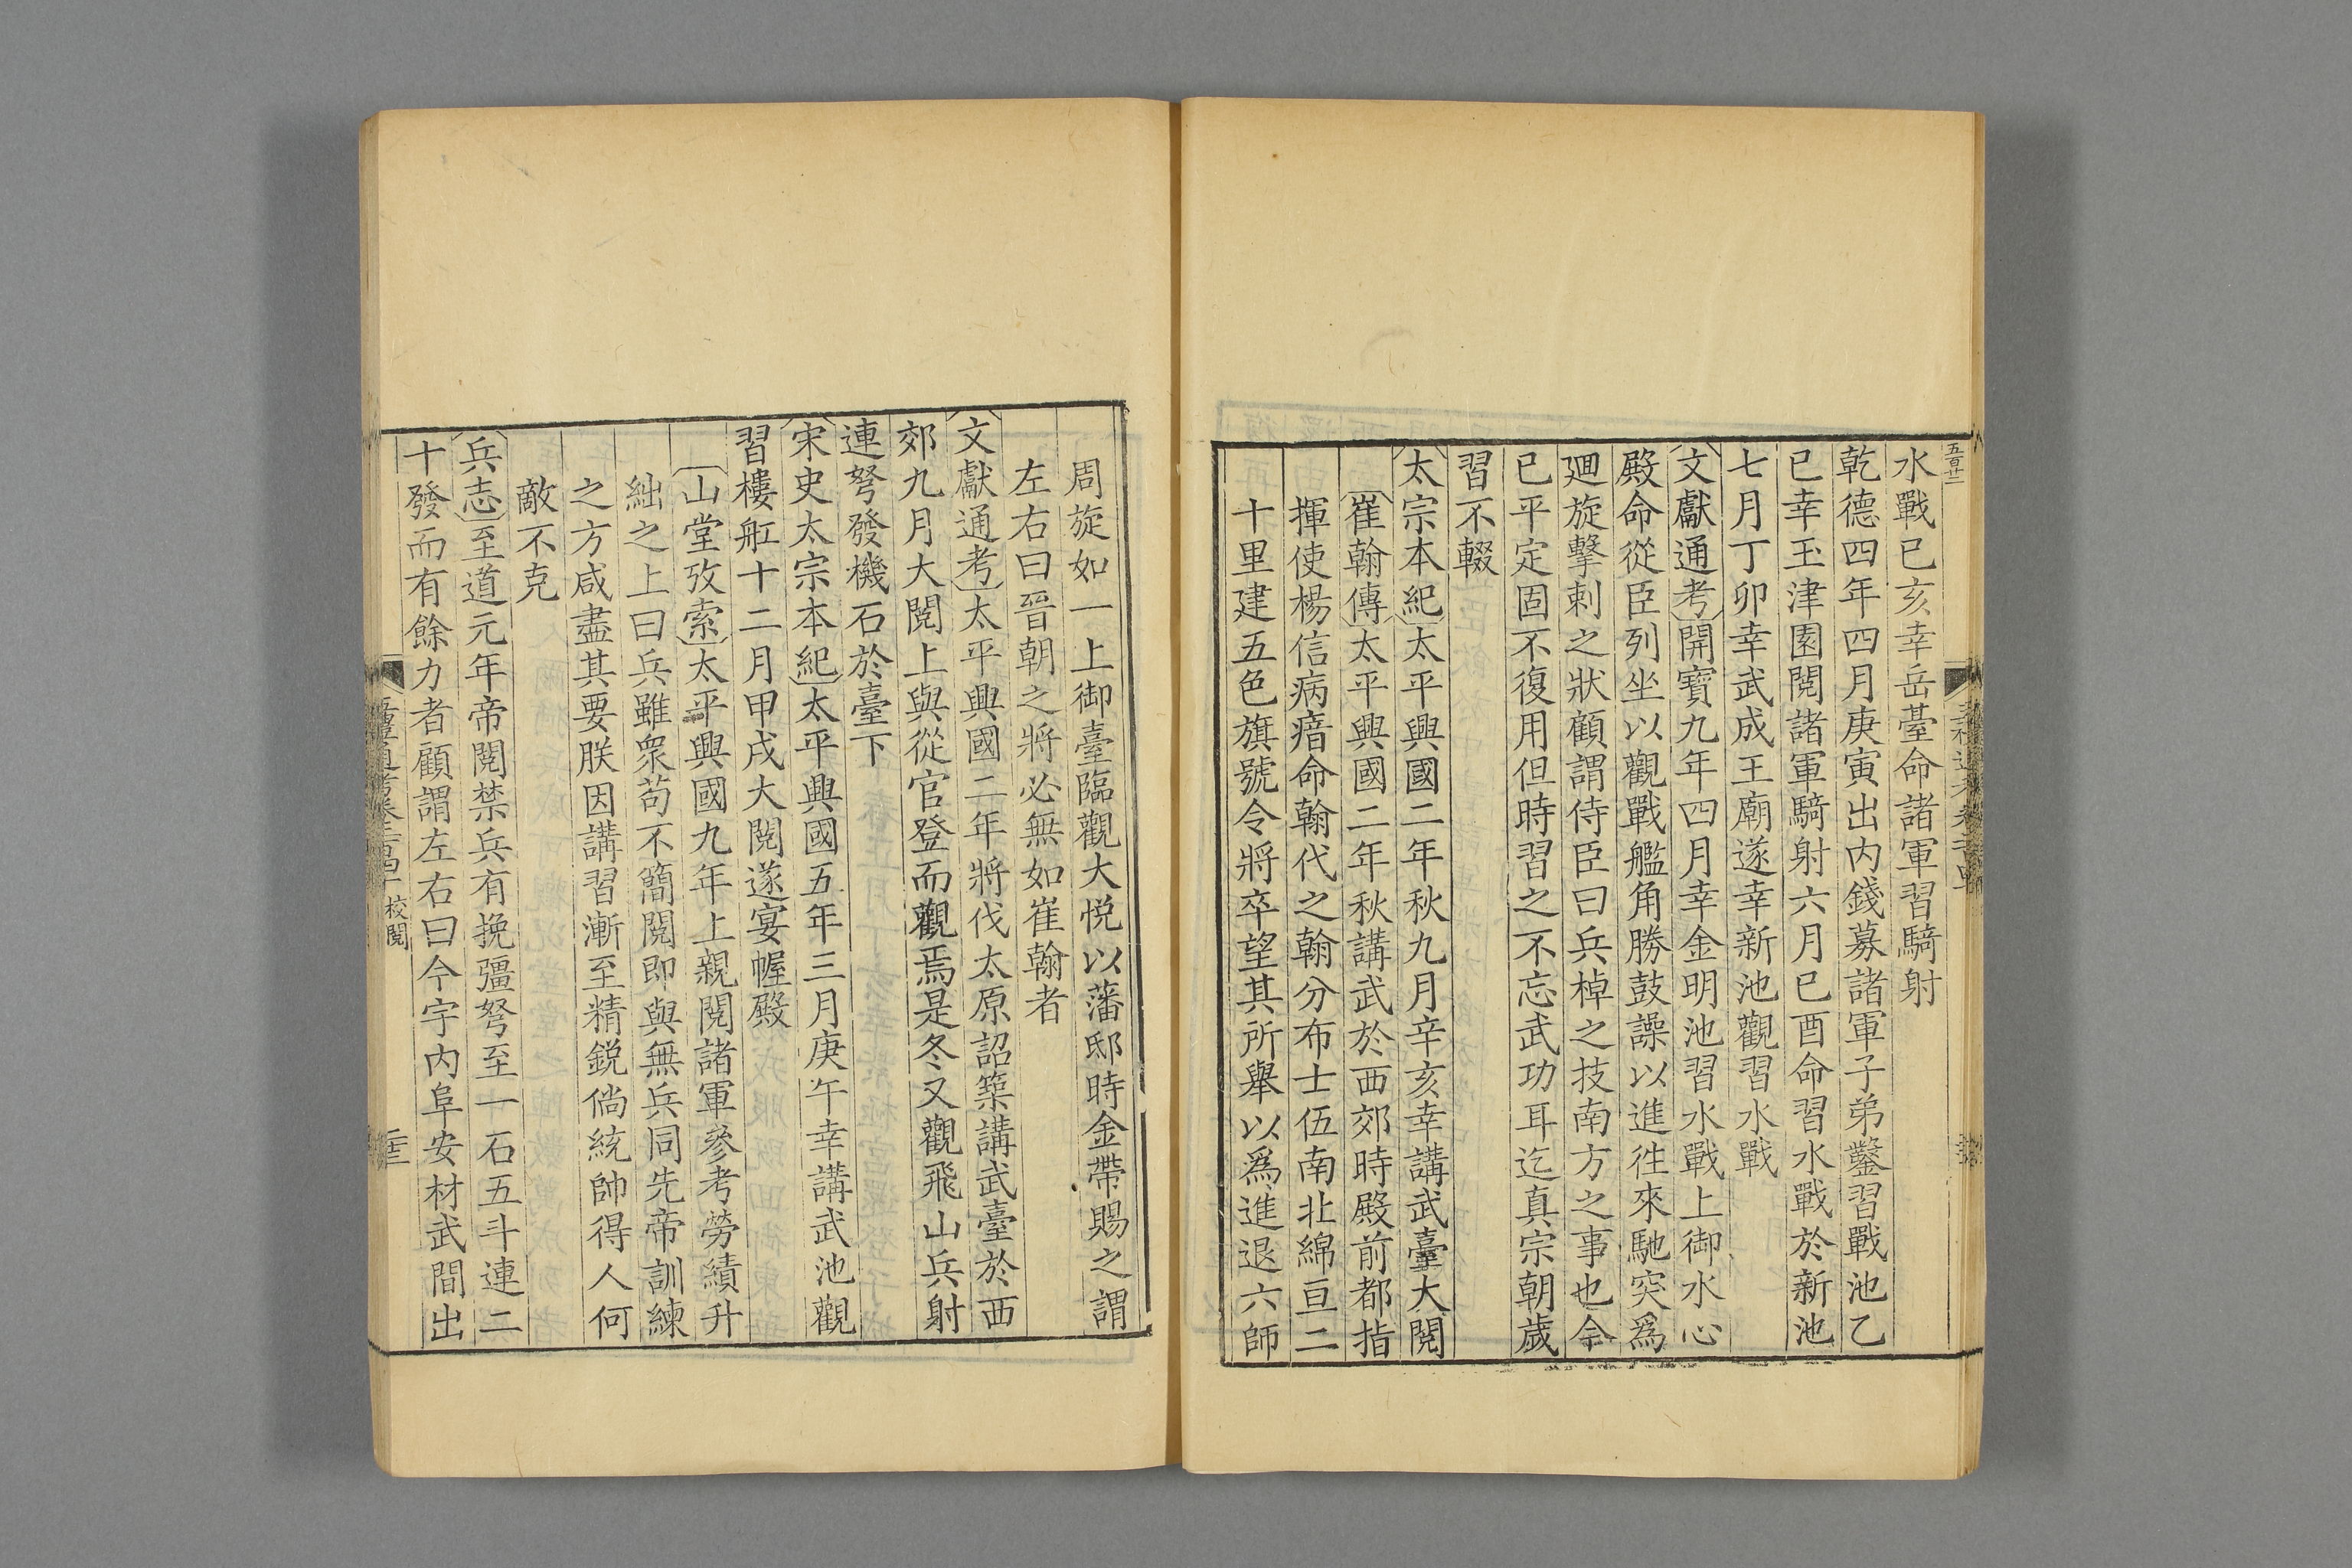 五百廿二
水戰已亥幸岳臺命諸軍習騎射
乾德四年四月庚寅出内錢募諸軍子弟鑿習戰池乙
巳幸玉津園閱諸軍騎射六月已酉命習水戰於新池
七月丁卯幸武成王廟遂幸新池觀習水戰
文獻通考開寶九年四月幸金明池習水戰上御水心
殿命從臣列坐以觀戰艦角勝鼓譟以進徃來馳突爲
廻旋擊刺之狀顧謂侍臣曰兵棹之技南方之事也今
已平定固不復用但時習之不忘武功耳迄真宗朝歲
習不輟
太宗本紀太平興國二年秋九月辛亥幸講武臺大閱
崔翰傳太平興國二年秋講武於西郊時殿前都指
揮使楊信病瘖命翰代之翰分布士伍南北綿亘二
十里建五色旗號令將卒望其所舉以爲進退六師
周旋如一上御臺臨觀大悅以藩邸時金帶賜之謂
左右曰晉朝之將必無如崔翰者
文獻通考太平興國二年將伐太原詔築講武臺於西
郊九月大閱上與從官登而觀焉是冬又觀飛山兵射
連弩發機石於臺下
宋史太宗本紀太平興國五年三月庚午幸講武池觀
習樓舡十二月甲戌大閱遂宴幄殿
山堂攷索太平興國九年上親閱諸軍參考勞績升
絀之上曰兵雖衆苟不簡閱即與無兵同先帝訓練
之方咸盡其要朕因講習漸至精鋭倘統帥得人何
敵不克
兵志至道元年帝閱禁兵有挽彊弩至一石五斗連二
十發而有餘力者顧謂左右曰今宇内阜安材武間出
校閱